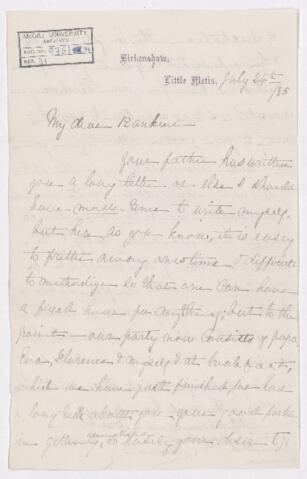 McGILL UNIVERSITY
ARCHIVES
ACC. NO.
REF.
Birkenshaw,
Little Metis, July 24th
/85
My dear Rankine
Your father has written
you a long letter or else I should
have made time to write myself,
but here as you know, it is easy
to fritter away one's time & difficult
to methodize so that one can have
a fixed hour for anything, but to the
point - our party now consists of papa
Eva, Florence & myself & at breakfast,
which we have just finished, we had
a long talk about you - your good luck
in getting so easily your desire to go